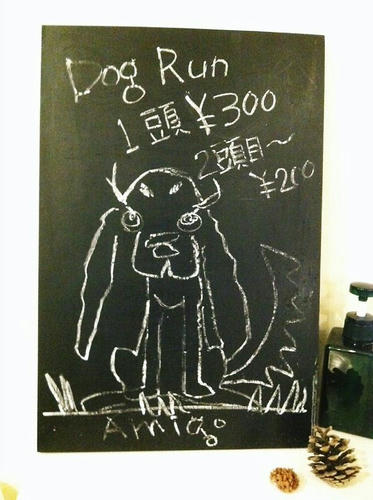 Dog Run
1頭 ¥300
2頭目〜
¥200
Amigo